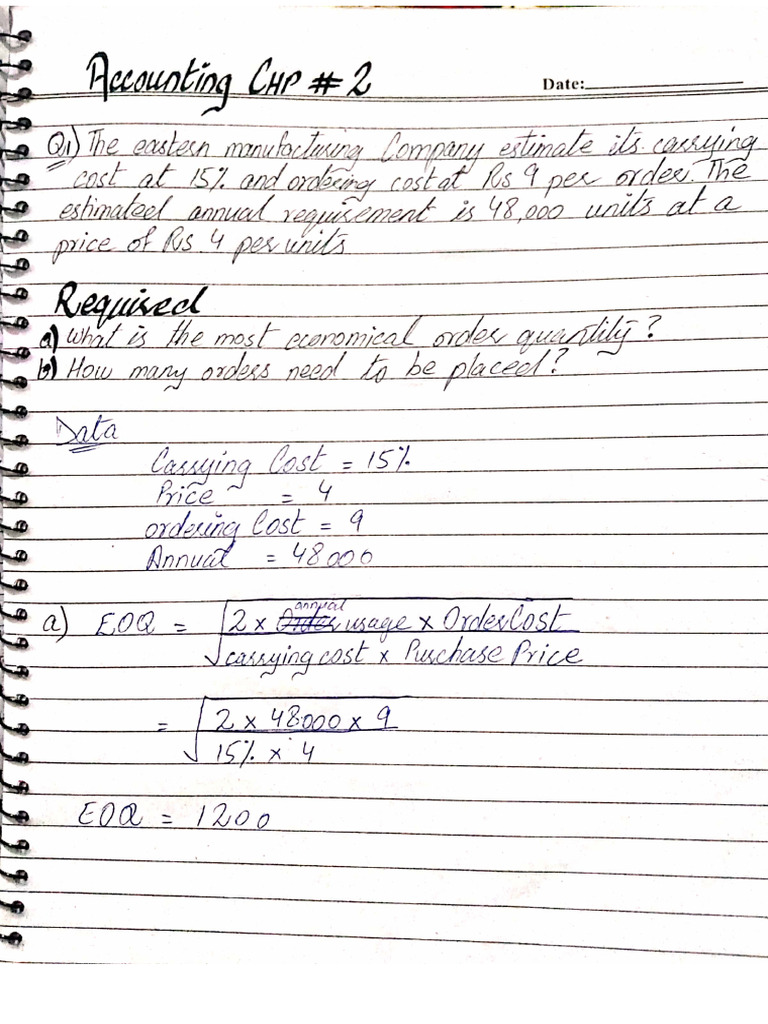 Accounting CHP # 2
Date:
Q1) The eastern manufacturing Company estimate its carrying
cost at 15% and ordering cost at Rs 9 per order. The
estimated annual requirement is 48,000 units at a
price of Rs. 4 per units
Required
a) What is the most economical order quantity?
b) How many orders need to be placed?
Data
Carrying Cost = 15%
Price = 4
ordering Cost = 9
Annual = 48000
a) EOQ = √ 2 × annual usage × Order Cost
carrying cost × Purchase Price
= √ 2 × 48000 × 9
15% × 4
EOQ = 1200